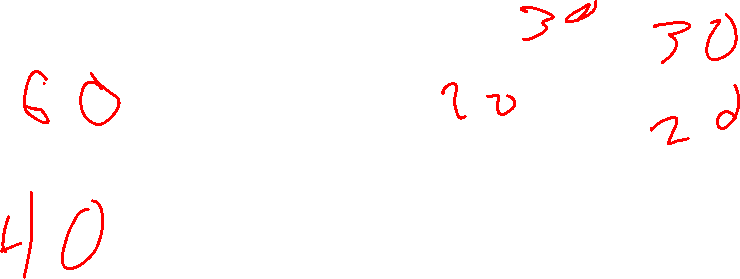 30 30
60 20 20
40